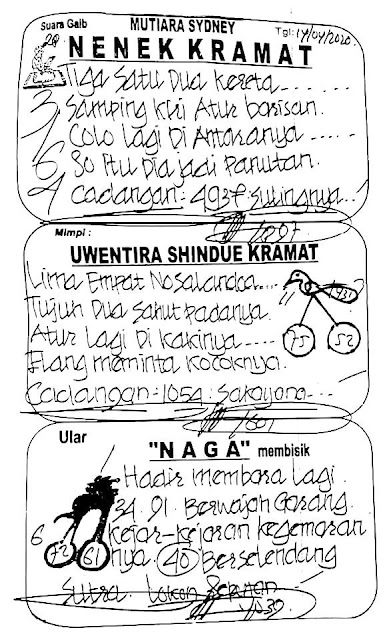 Suara Gaib MUTIARA SYDNEY Tgl: 14/04/2020.
NENEK KRAMAT
Tiga Satu Dua Kereta......
3 Samping Kiri Atur barisan.
Colo lagi Di Antaranya......
6 So Itu Dia jadi Panutan.
4 Cadangan: 4937
Mimpi:
UWENTIRA SHINDUE KRAMAT
Lima Empat
Tujuh Dua Sahut Padanya.
Atur Lagi Di Kakinya.....
Elang meminta Kocoknya.
75 52
Cadangan = 1054.
Ular "NAGA" membisik
Hadir membara lagi.
34. 91. Berwajah Garang.
6 Kejar-kejaran kegemaran
72 61 nya. 40 Berselendang
Sutra.